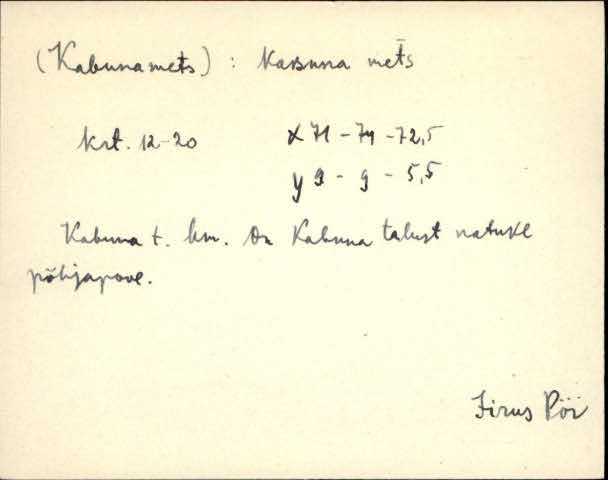 (Kabunamets) : Kaʙuna met̄s
krt. 12-20 x 71 - 74 - 72,5
y 9 - 9 - 5,5
Kabuna t. hm. On Kabuna talust natuke
põhjapool.
Firus Pöi